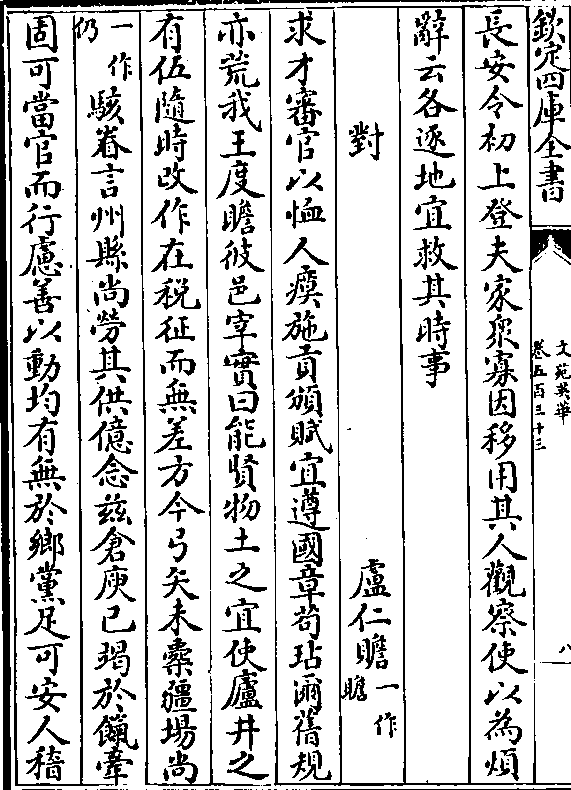 欽定四庫全書
文苑英華
卷五百三十三
八
長安令初上登夫家衆寡因移用其人觀察使以為煩
辭云各逐地宜救其時事
對
盧仁瞻一作瞻
求才審官以恤人瘼施貢頒賦宜遵國章苟玷爾舊規
亦荒我王度瞻彼邑宰實曰能賢物土之宜使廬井之
有伍隨時改作在税征而無差方今弓矢未櫜疆場尚
一作仍駭眷言州縣尚勞其供億念兹倉庾已竭於餼牽
固可當官而行慮善以動均有無於鄉黨足可安人穡